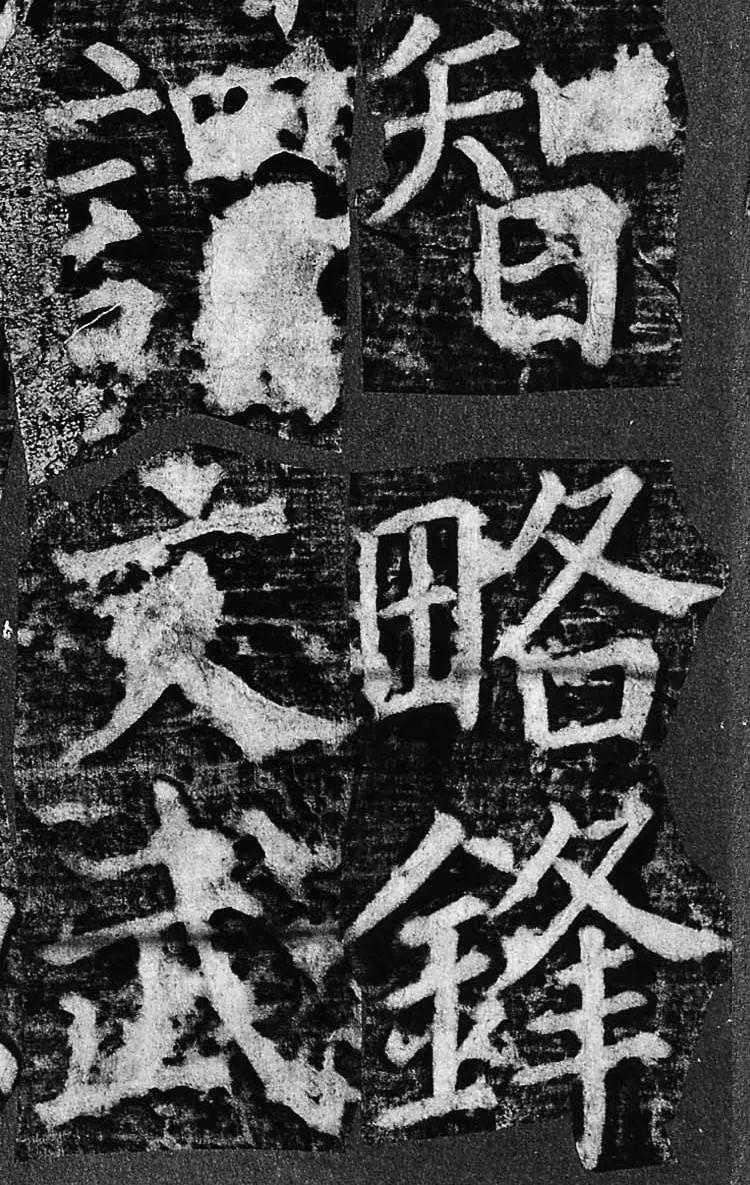 智略鋒
謂文武